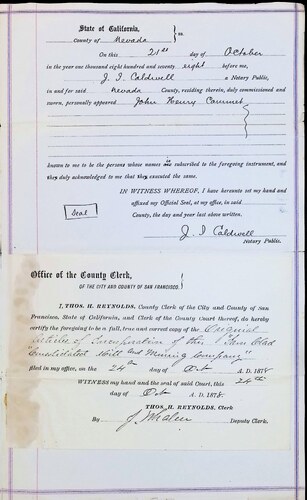 State of California,
County of Nevada } ss.
On this 21st day of October
in the year one thousand eight hundred and seventy eight before me,
J. I. Caldwell a Notary Public,
in and for said Nevada County, residing therein, duly commissioned and
sworn, personally appeared John Henry
known to me to be the persons whose names are subscribed to the foregoing instrument, and
they duly acknowledged to me that they executed the same.
IN WITNESS WHEREOF, I have hereunto set my hand and
affixed my Official Seal, at my office, in said
Seal
County, the day and year last above written.
J. I. Caldwell
Notary Public.
Office of the County Clerk,
OF THE CITY AND COUNTY OF SAN FRANCISCO.
I, THOS. H. REYNOLDS, County Clerk of the City and County of San
Francisco, State of California, and Clerk of the County Court thereof, do hereby
certify the foregoing to be a full, true and correct copy of the Original
Articles of Incorporation of the "Iron Clad
Consolidated Mill and Mining Company"
filed in my office, on the 24th day of Oct A. D. 1878
WITNESS my hand and the seal of said Court, this 24th
day of Oct A. D. 1878.
THOS. H. REYNOLDS, Clerk
By Deputy Clerk.